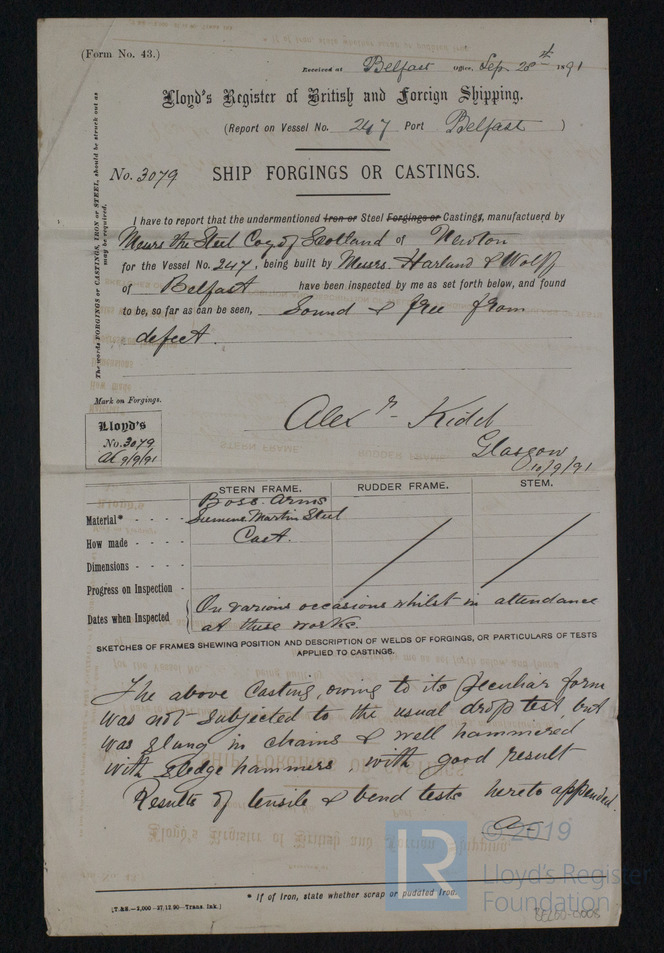 (Form No. 43.)
Received at Belfast Office, Sep 28th 1891
Lloyd's Register of British and Foreign Shipping.
(Report on Vessel No. 247 Port Belfast )
No. 3079 SHIP FORGINGS OR CASTINGS.
The words FORGINGS or CASTINGS, IRON or STEEL, should be struck out as
may be required.
I have to report that the undermentioned Iron or Steel Forgings or Castings, manufactuerd by
Messrs The Steel Coy of Scotland of Newton
for the Vessel No. 247, being built by Messrs. Harland & Wolff
of Belfast have been inspected by me as set forth below, and found
to be, so far as can be seen, Sound & free from
defect.
Mark on Forgings.
Lloyd's
No. 3079
AK 9/9/91
Alexr Kidd
Glasgow
10/9/91
STERN FRAME. RUDDER FRAME. STEM.
Boss Arms
Material* - - - - Siemens Martin Steel
How made - - - - Cast.
Dimensions - - - -
Progress on Inspection -
Dates when Inspected On various occasions whilst in attendance
at these works.
SKETCHES OF FRAMES SHEWING POSITION AND DESCRIPTION OF WELDS OF FORGINGS, OR PARTICULARS OF TESTS
APPLIED TO CASTINGS.
The above Casting, owing to its peculiar form
was not subjected to the usual drop test, but
was slung in chains & well hammered
with sledge hammers, with good result
Results of tensile & bend tests hereto appended.
© 2019
LR
Lloyd's Register
Foundation
* If of Iron, state whether scrap or puddled Iron.
[T.&N.—2,000—27.12.90—Trans. Ink.]